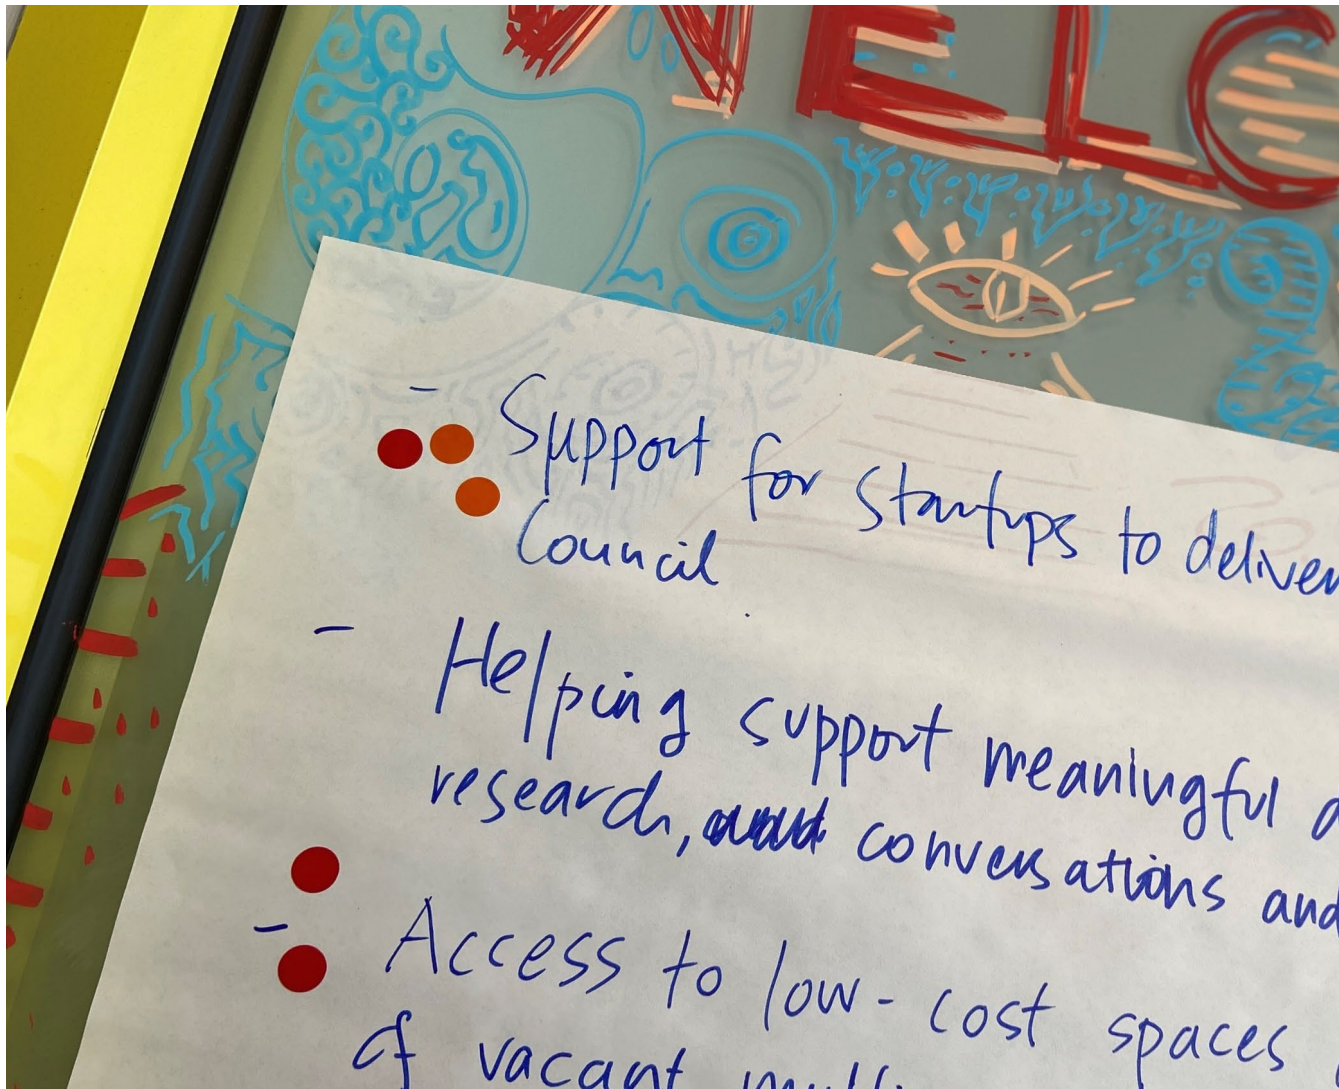 WELC
- Support for startups to deliver
Council
- Helping support meaningful
research, conversations and
- Access to low-cost spaces
of vacant